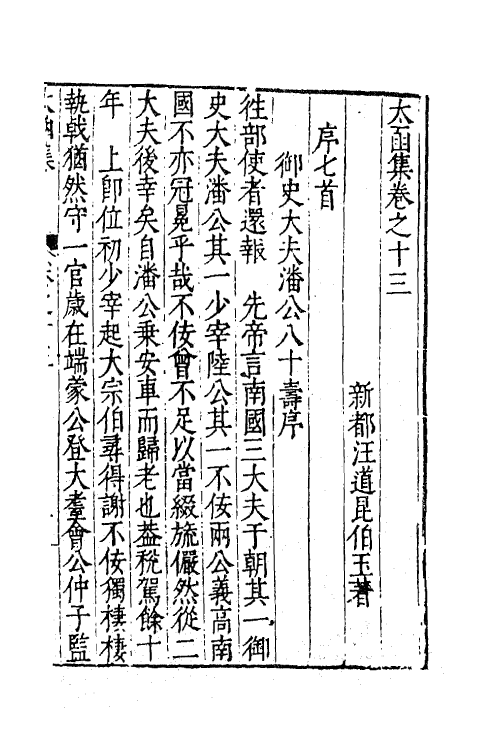 太函集卷之十三
新都汪道昆伯玉著
序七首
御史大夫潘公八十壽序
徃部使者還報　先帝言南國三大夫于朝其一御
史大夫潘公其一少宰陸公其一不佞兩公義高南
國不亦冠冕乎哉不佞曾不足以當綴旒儼然從二
大夫後幸矣自潘公乗安車而歸老也葢稅駕餘十
年　上卽位初少宰起大宗伯尋得謝不佞獨棲棲
執戟猶然守一官歳在端蒙公登大耋會公仲子監
太函集